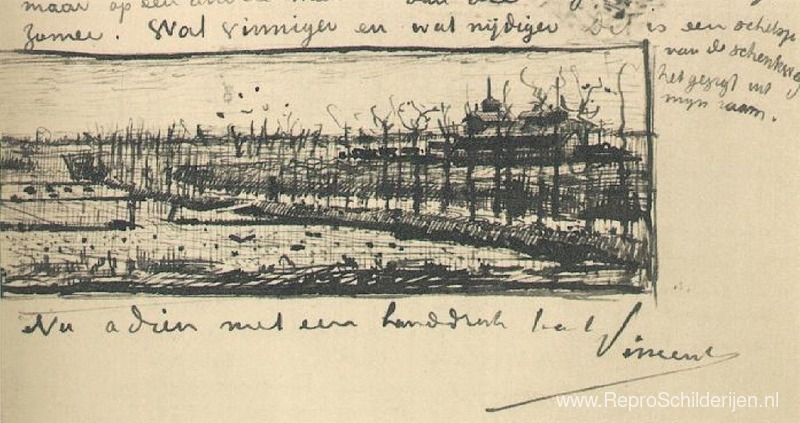 maar op een
zomer. Wat vinniger en wat nijdiger Dit is een schetsje
van de schenkweg
het gezigt uit
mijn raam.
Nu adieu met een handdruk
Vincent
www.ReproSchilderijen.nl